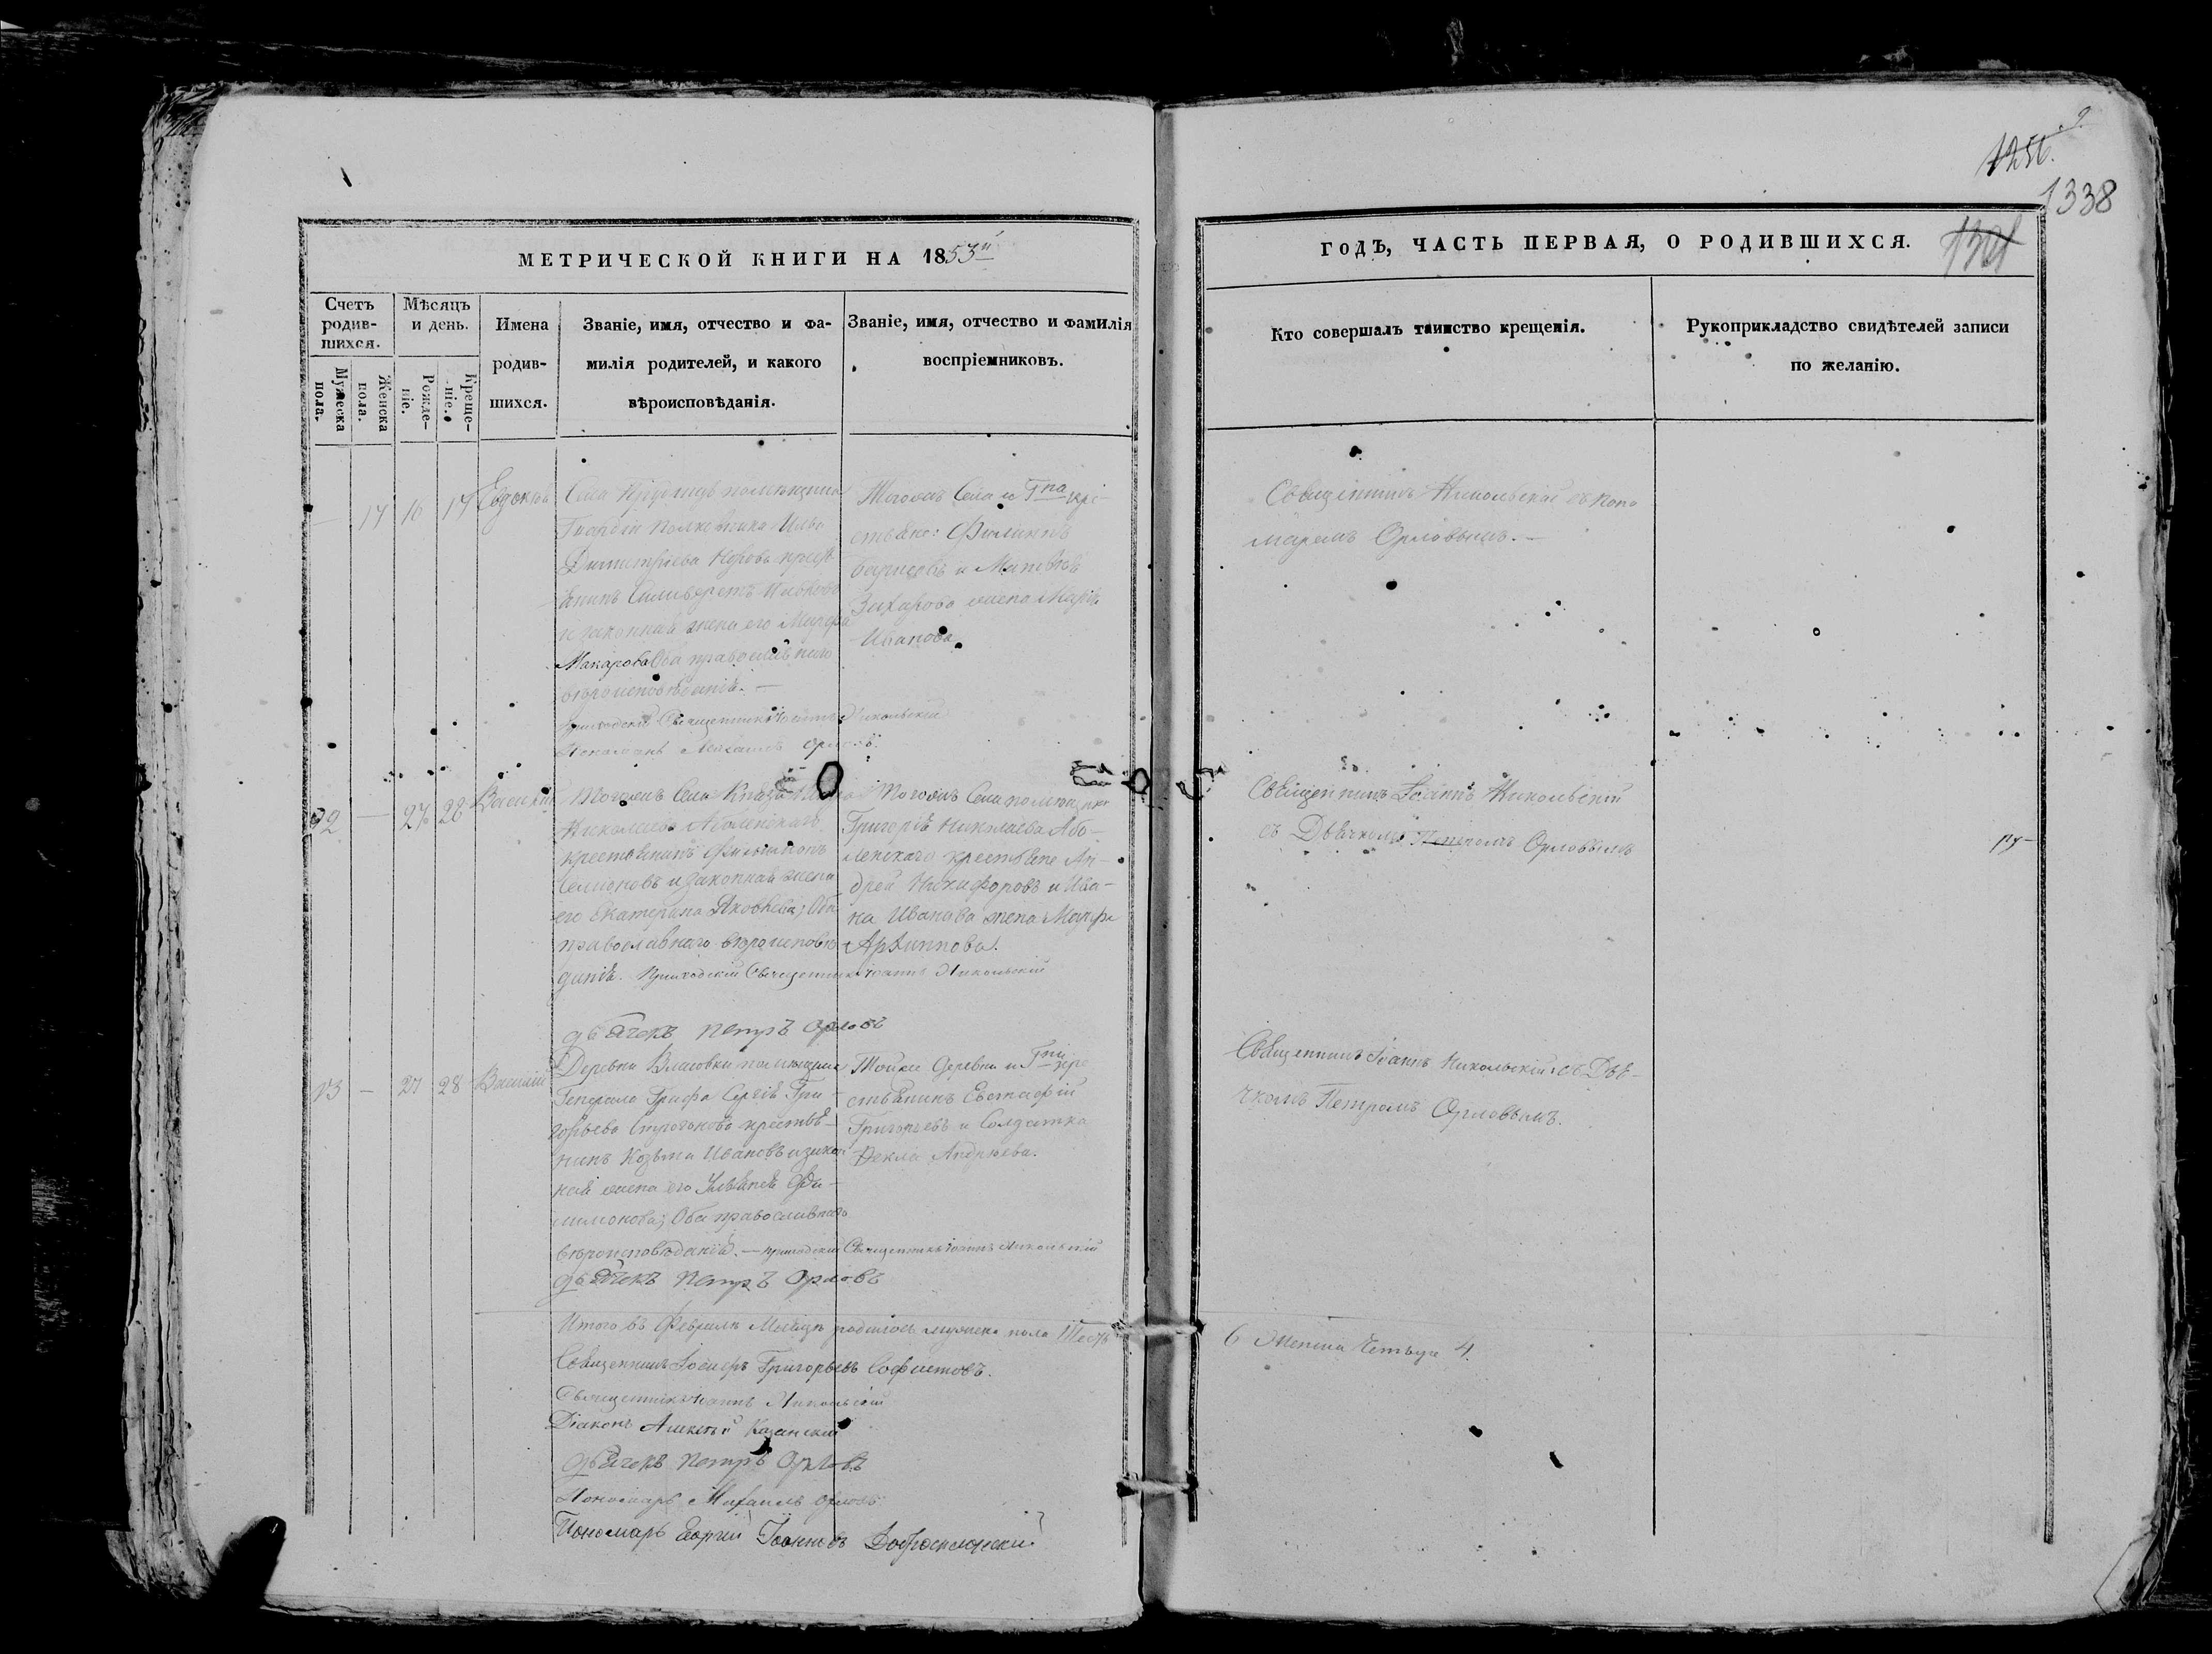 9
1256.
1338
1301
МЕТРИЧЕСКОЙ КНИГИ НА 1853й
ГОДЪ, ЧАСТЬ ПЕРВАЯ, О РОДИВШИХСЯ.
Счетъ родив-шихся.
Мужеска пола.
Женска пола.
Мѣсяцъ и день.
Рожде-ніе.
Креще-ніе.
Имена
родив-
шихся.
Званіе, имя, отчество и фа-
милія родителей, и какого
вѣроисповѣданія.
Званіе, имя, отчество и фамилія
воспріемниковъ.
Кто совершалъ таинство крещенія.
Рукоприкладство свидѣтелей записи
по желанію.
— 17 16 17
Села помѣщика
Гвардіи Полковника
Димитріева крест
янинъ
и законная жена его Марфа
Макарова Оба православнаго
вѣроисповѣданія. —
Приходскій Священникъ Іоаннъ Никольскій
Пономарь Михаилъ Орловъ.
Тогожъ Села и Гна кре-
стьяне: Филиппъ
и
Захарова жена Марія
Иванова.
Священникъ Никольскій съ Поно
маремъ Орловымъ. —
— 27 28 Василій
Тогожъ Села Князя
Николаева Аболенскаго
крестьянинъ
Семіоновъ и законная жена
его Екатерина Яковлева; Оба
православнаго вѣроисповѣ
данія. Приходскій Священникъ Іоаннъ Никольскій
дьячекъ Петръ Орловъ
Тогожъ Села помѣщика
Григорія Николаева Або-
ленскаго крестьяне Ан-
дрей Никифоровъ и Ива-
на Иванова жена Марфа
Архиппова.
Священникъ Іоаннъ Никольскій
съ Дьячкомъ Петромъ Орловымъ
ру-
13 — 27 28 Василій
Деревни помѣщика
Генерала Графа Сергія Гри-
горьева Строгонова крестья-
нинъ Козьма Ивановъ и закон
ная жена его Ульянія Фи-
лимонова; Оба православнаго
вѣроисповѣданія. — приходскій Священникъ Іоаннъ Никольскій
дьячекъ Петръ Орловъ
Тойже деревни и Гна кре
стьянинъ Евстафій
Григорьевъ и Солдатка
Ѳекла Андреева.
Священникъ Іоаннъ Никольскій съ Дья-
чкомъ Петромъ Орловымъ.
Итого въ Февралѣ Месяцѣ родилось мужеска пола Шесть
6 Женска Четыре 4.
Священникъ Іосифъ Григорьевъ Софистовъ.
Священникъ Іоаннъ Никольскій
Діаконъ Алексѣй Казанскій
дьячекъ Петръ Орловъ
Пономарь Михаилъ Орловъ
Пономарь Георгій Іоанновъ